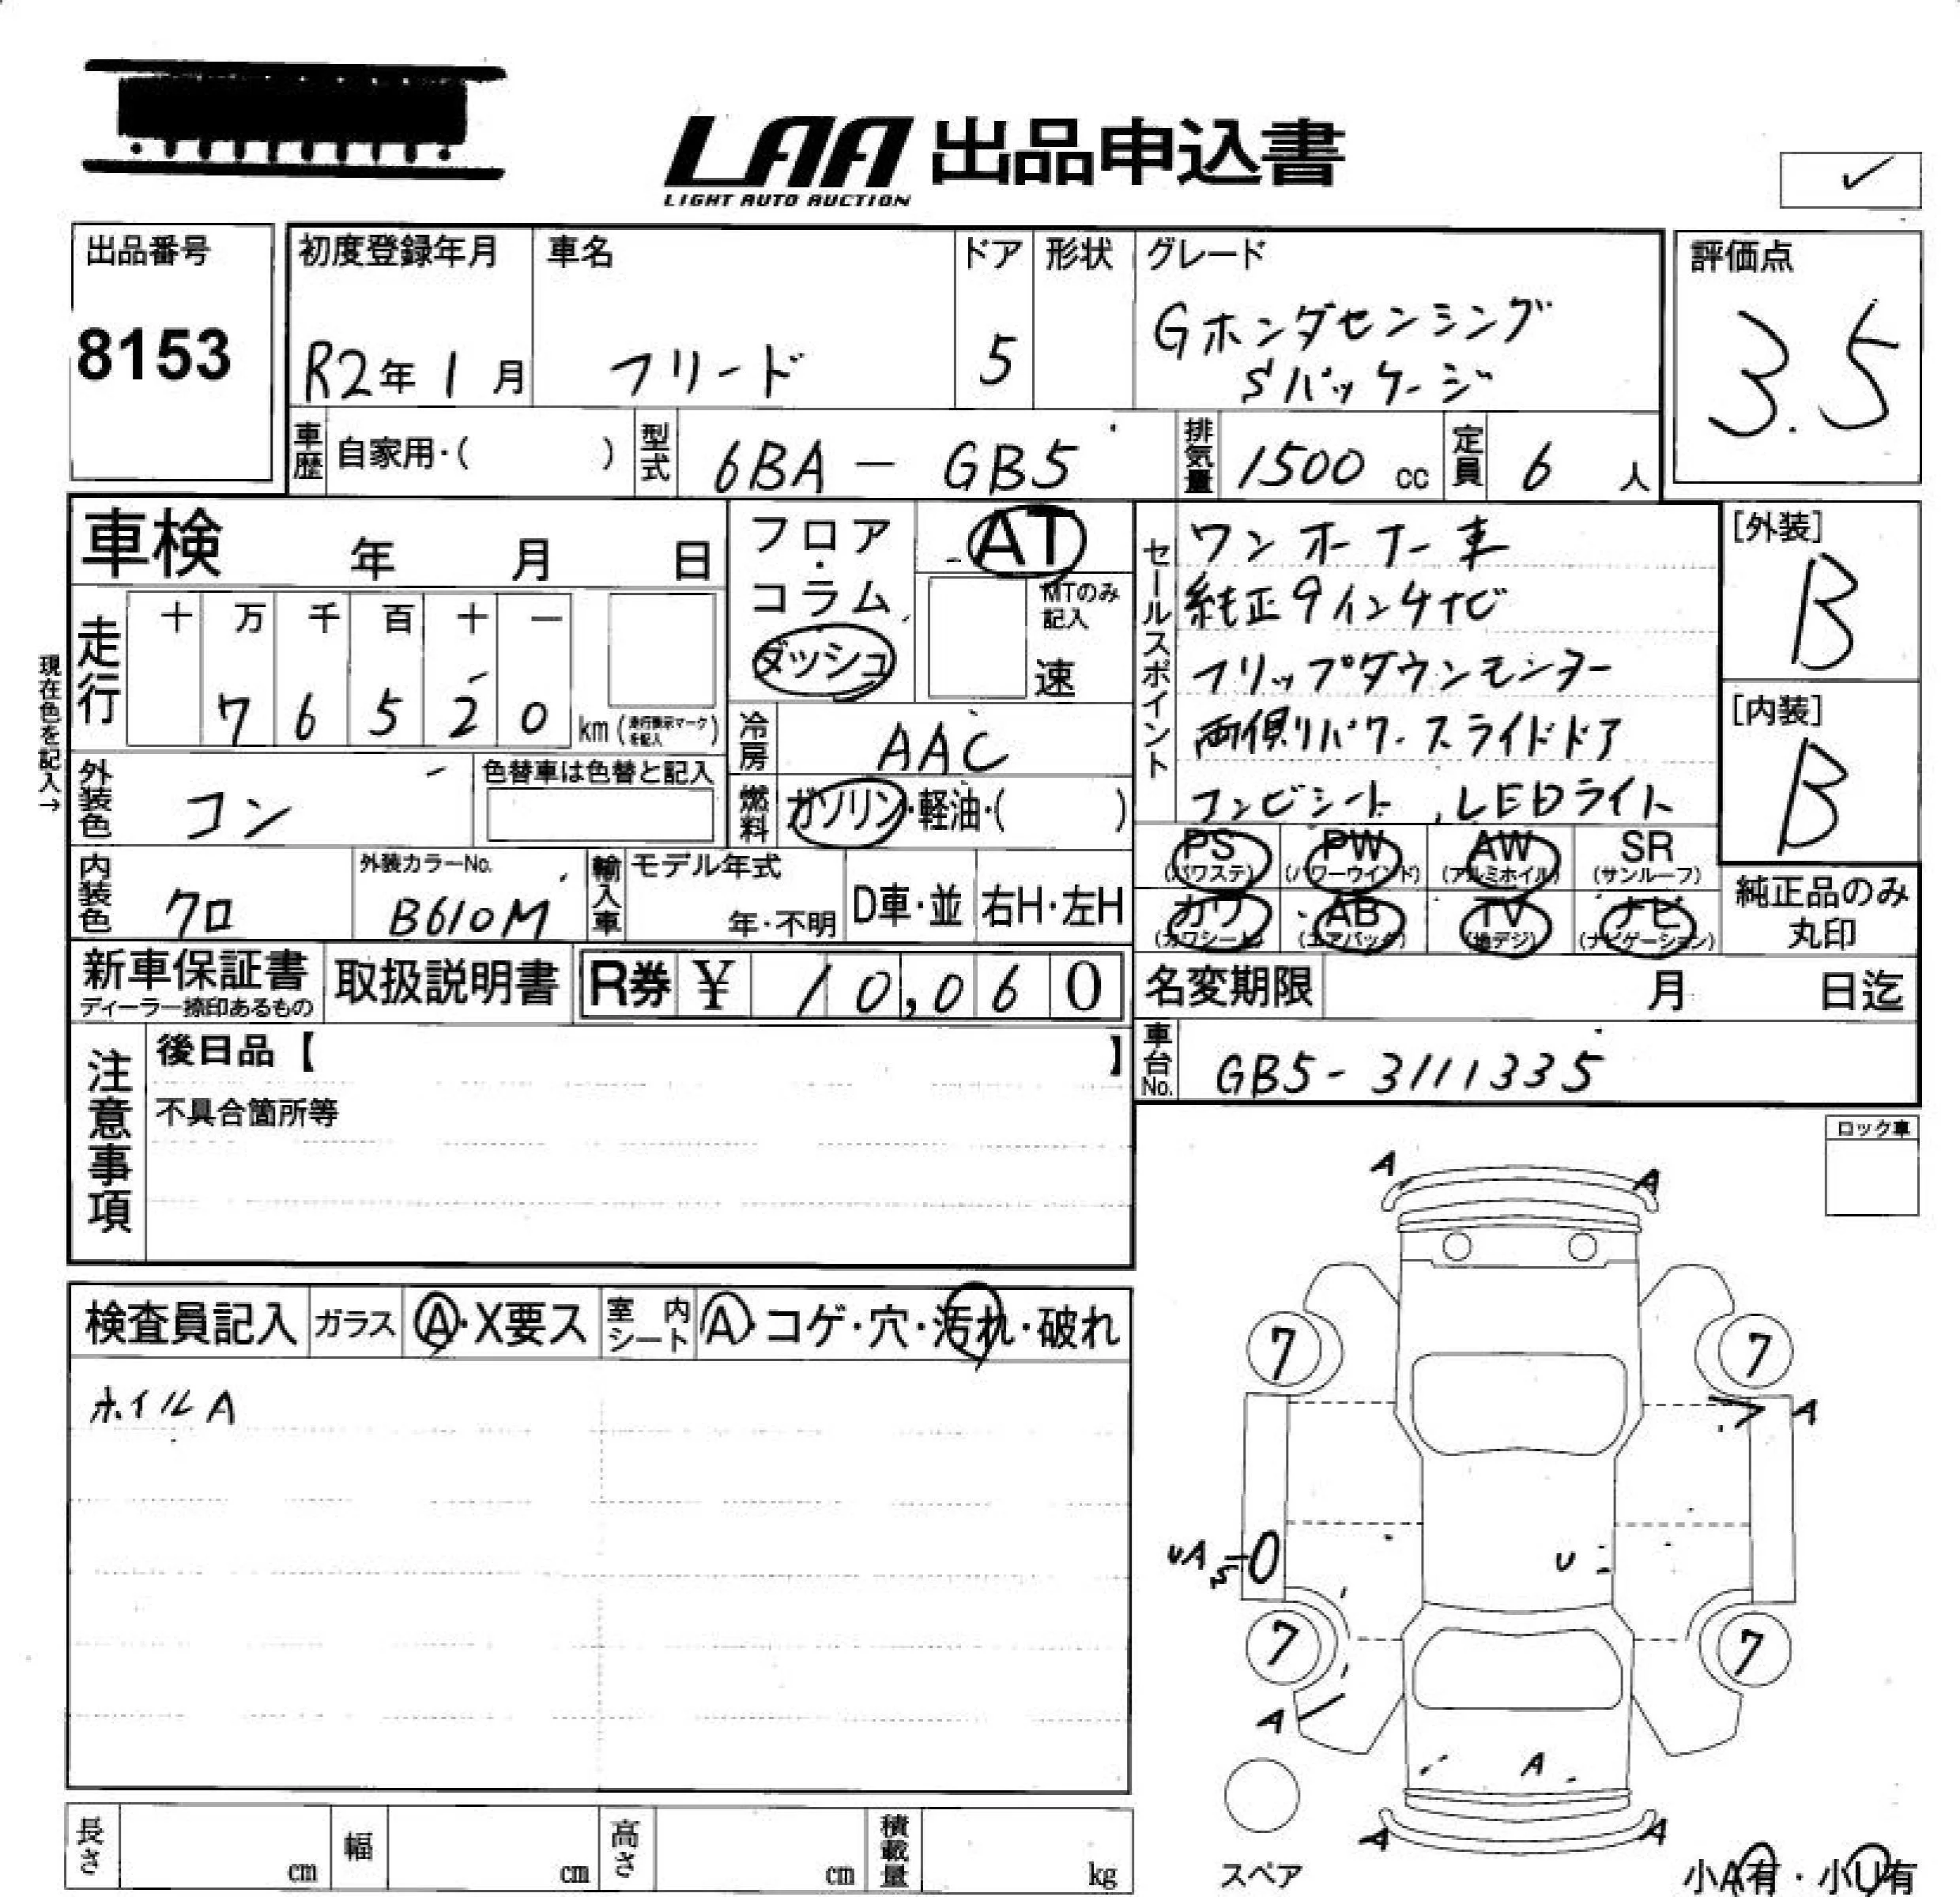 LAA 出品申込書
LIGHT AUTO AUCTION
✓
出品番号
8153
初度登録年月
R2年 1月
車名
フリード
ドア
5
形状
グレード
Gホンダセンシング
Sパッケージ
評価点
3.5
車歴 自家用・( )
型式 6BA - GB5
排気量 1500 cc
定員 6 人
車検 年 月 日
フロア・コラム
ダッシュ
AT
MTのみ記入
速
セールスポイント
ワンオーナー車
純正9インチナビ
フリップダウンモニター
両側パワースライドドア
コンビシート、LEDライト
[外装]
B
[内装]
B
現在色を記入→
走行
十 万 千 百 十 一
7 6 5 2 0 km (走行表示マークを記入)
冷房 AAC
外装色 コン
色替車は色替と記入
燃料 ガソリン・軽油・( )
内装色 クロ
外装カラーNo.
B610M
輸入車 モデル年式
年・不明
D車・並
右H・左H
PS (パワステ)
PW (パワーウインド)
AW (アルミホイル)
SR (サンルーフ)
カワ (カワシート)
AB (エアバック)
TV (地デジ)
ナビ (ナビゲーション)
純正品のみ
丸印
新車保証書
ディーラー捺印あるもの
取扱説明書
R券 ¥ 10,060
名変期限 月 日迄
車台No. GB5-3111335
注意事項
後日品【 】
不具合箇所等
ロック車
検査員記入 ガラス A・X要ス
室内シート A・コゲ・穴・汚れ・破れ
ホイルA
A
A
7
7
A
UA
U
7
7
A
A
A
A
スペア
小A有・小U有
長さ cm
幅 cm
高さ cm
積載量 kg